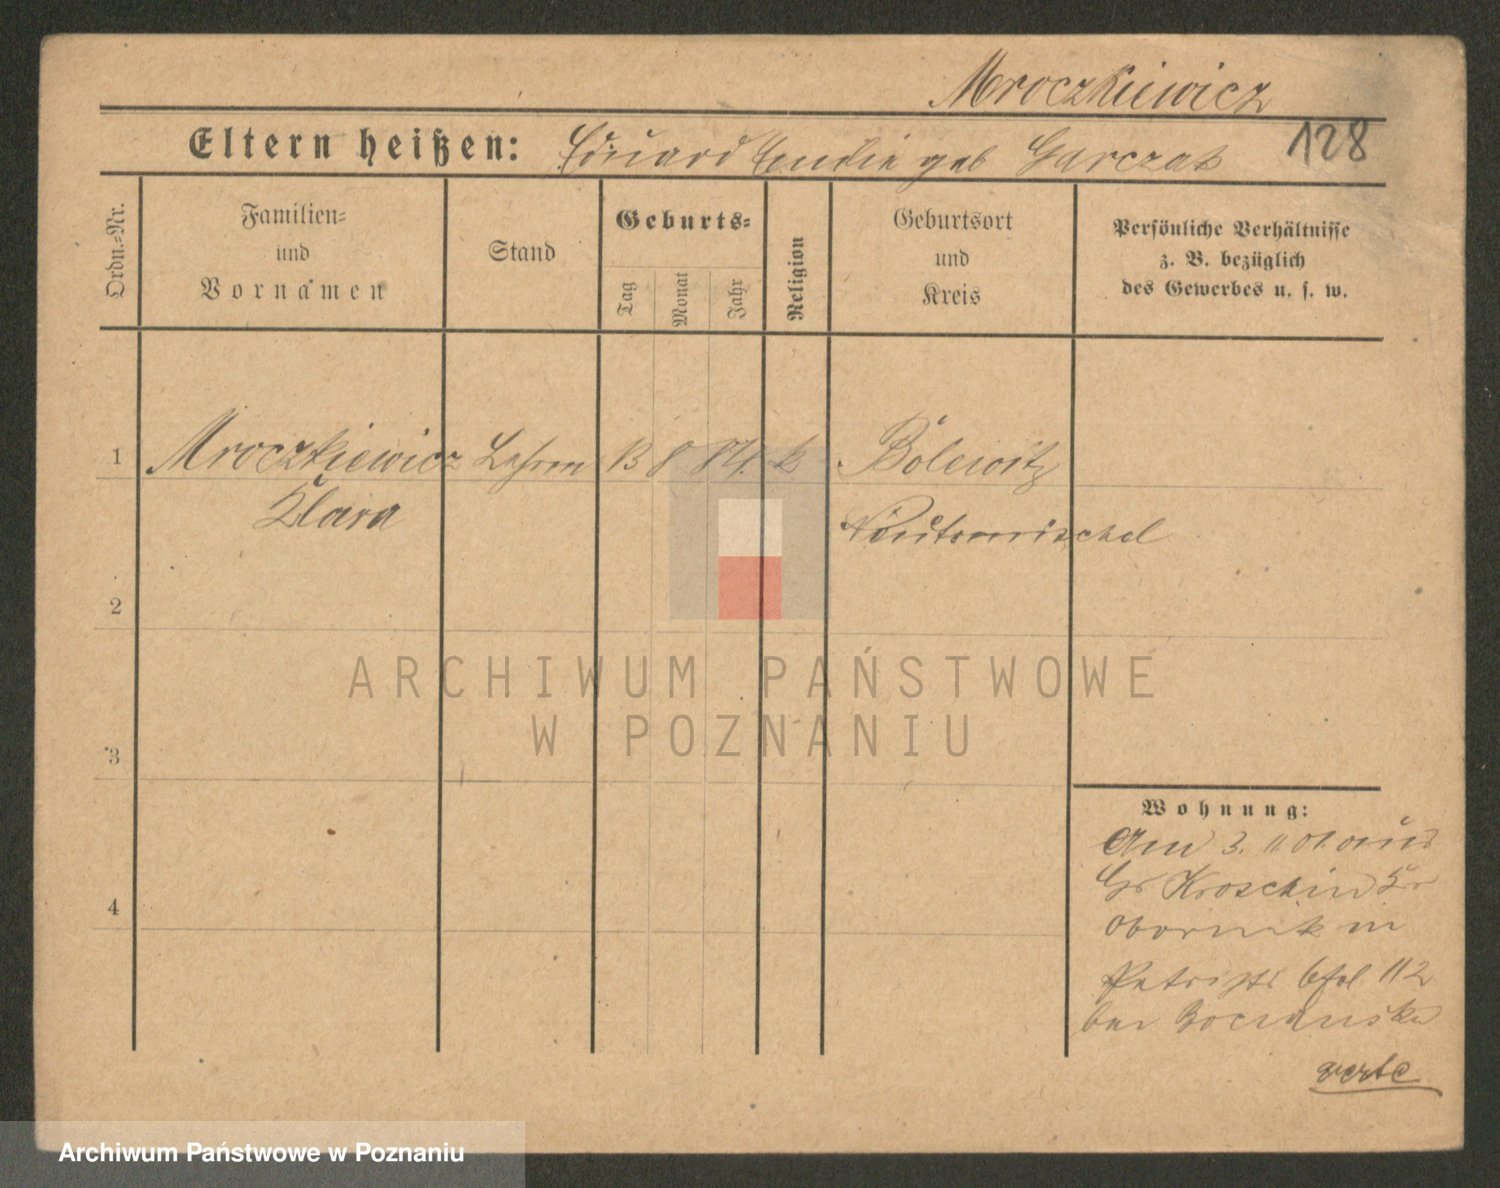 Mroczkiewicz
128
Eltern heißen: Eduard Emilie geb Garczak
Ordn.=Nr.
Familien=
und
Vornamen
Stand
Geburts=
Tag
Monat
Jahr
Religion
Geburtsort
und
Kreis
Persönliche Verhältnisse
z. B. bezüglich
des Gewerbes u. s. w.
1 Mroczkiewicz 13 8 k Bolewitz
Klara
Neutomischel
2
3
4
ARCHIWUM PAŃSTWOWE
W POZNANIU
Wohnung:
Am 3. 11 01. aus
Kroschin Kr
Obornik in
112
bei
verte
Archiwum Państwowe w Poznaniu